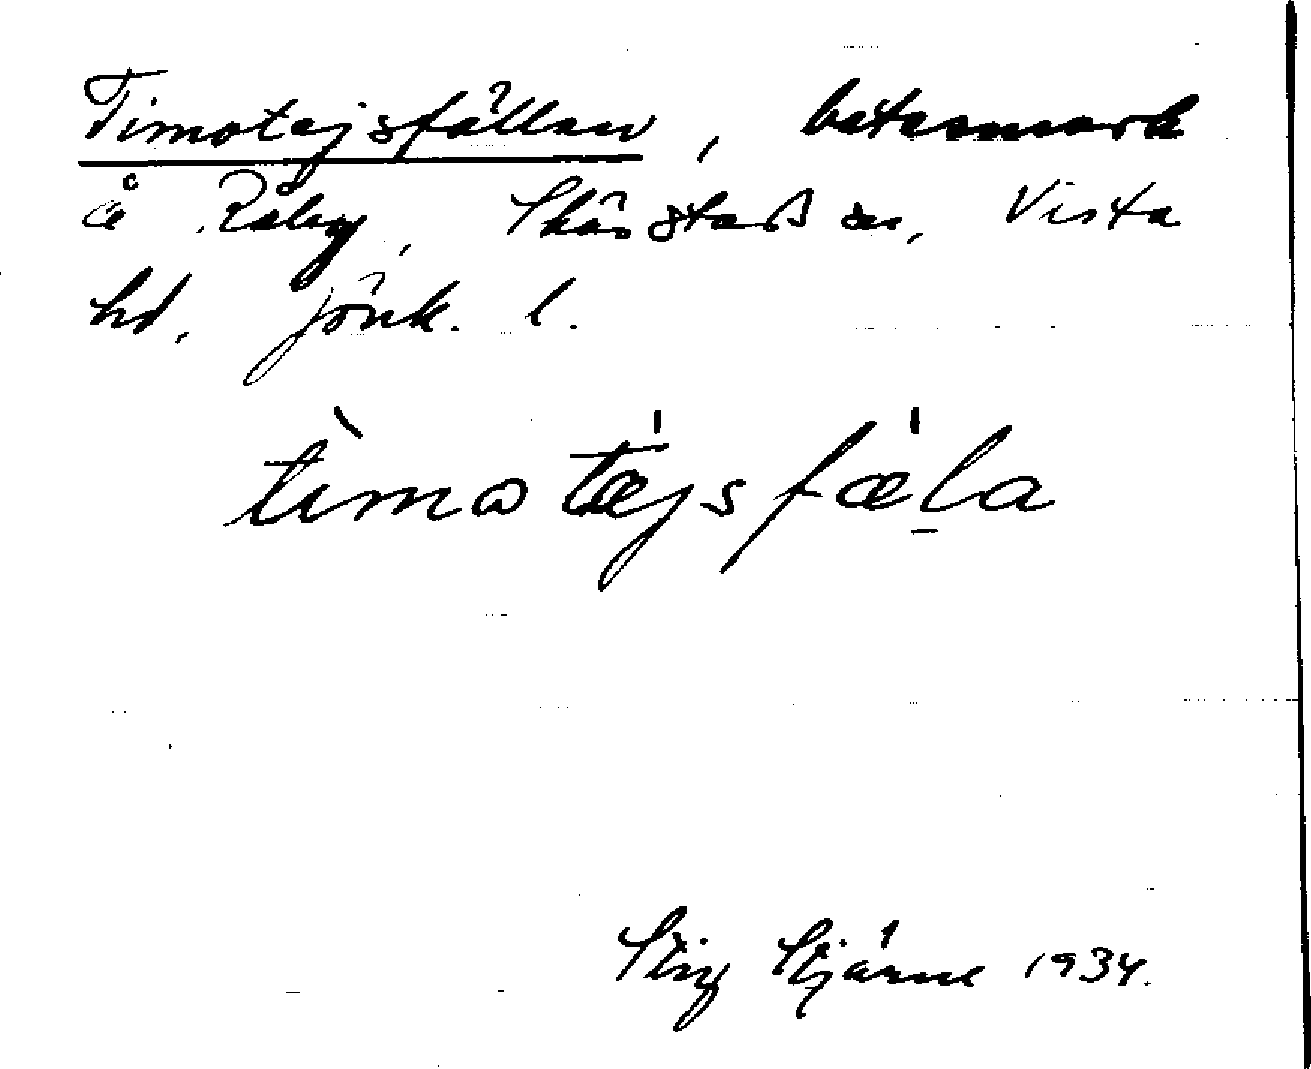 Timotejsfällan, betesmark
å Råby, Skärstad sn, Vista
hd, Jönk. l.
tìmωtǽjsfæ̍l̠a
Stig Stjärne 1934.